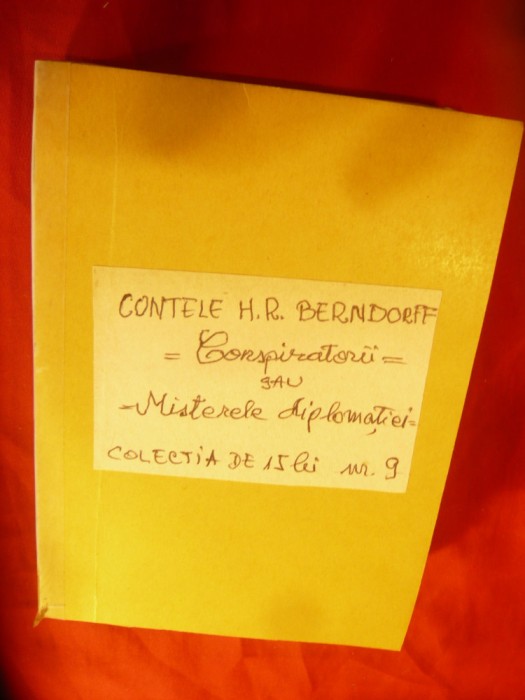 CONTELE H.R. BERNDORFF
= Conspiratorii =
SAU
- Misterele diplomației =
COLECTIA DE 15 lei nr. 9